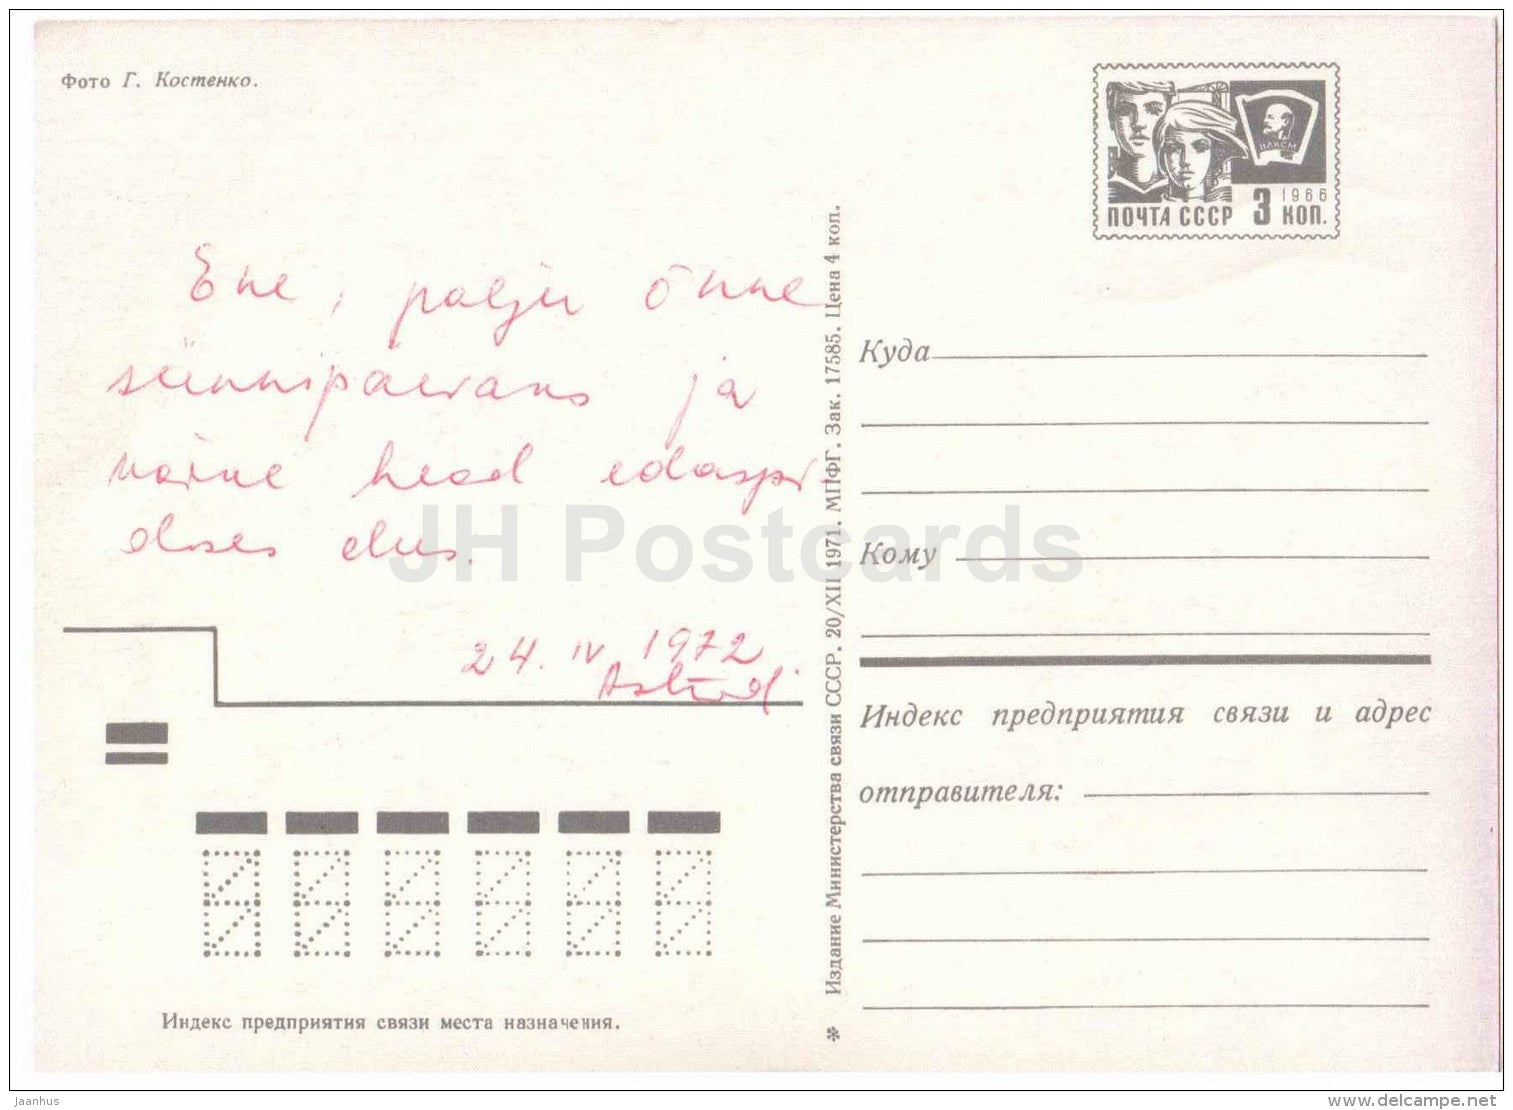 Фото Г. Костенко.
ВЛКСМ
1966
ПОЧТА СССР 3 КОП.
Ene, palju õnne
sünnipäevaks ja
kõike head edaspi-
doses elus.
24. IV 1972
JH Postcards
Издание Министерства связи СССР. 20/XII 1971. МПФГ. Зак. 17585. Цена 4 коп.
Куда
Кому
Индекс предприятия связи и адрес
отправителя:
Индекс предприятия связи места назначения.
Jaanhus
www.delcampe.net